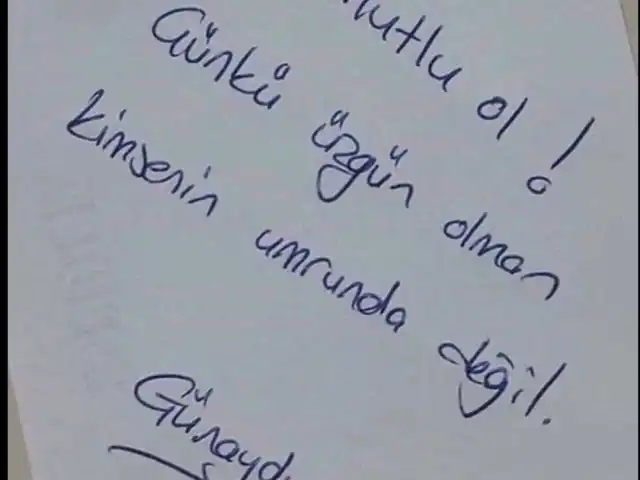 mutlu ol!
Günkü üzgün olman
kimsenin umrunda değil.
Günayd